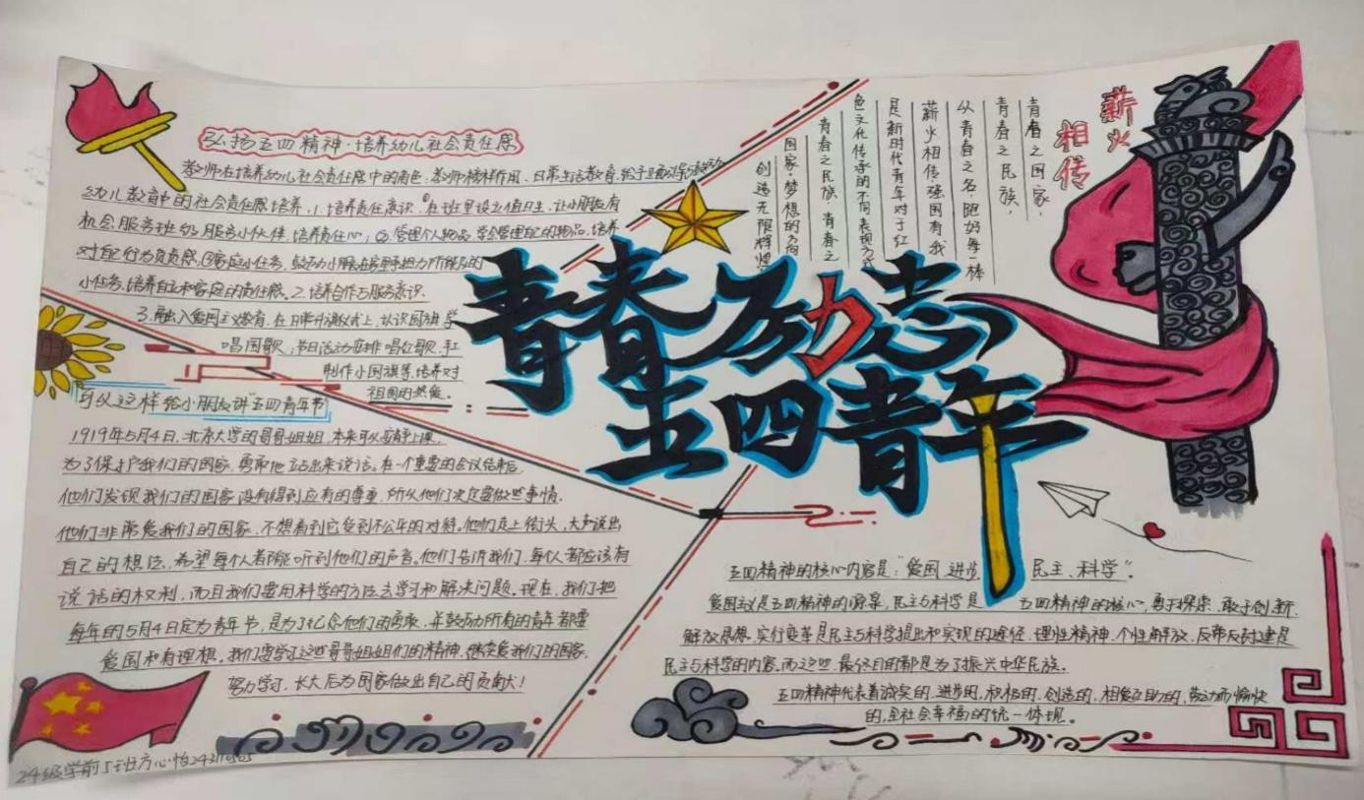 弘扬五四精神·培养幼儿社会责任感
教师在培养幼儿社会责任感中的角色：教师榜样作用、日常生活教育、给予
幼儿教育中的社会责任感培养：1.培养责任意识：①在班里设立值日生，让小朋友有
机会服务班级，服务小伙伴，培养责任心；②管理个人物品，学会管理自己的物品，培养
对自己行为负责感，③家庭小任务，鼓励小朋友在家里承担力所能及的
小任务，培养自立和家庭的责任感。2.培养合作与服务意识
3.融入爱国主义教育，在日常升旗仪式上，认识国旗、学
唱国歌；节日活动安排唱红歌、手工
制作小国旗等，培养对
祖国的热爱。
可以这样给小朋友讲“五四青年节”
1919年5月4日，北京大学的哥哥姐姐，本来可以安静上课，
为了保护我们的国家，勇敢地站出来说话。在一个重要的会议结束后，
他们发现我们的国家没有得到应有的尊重，所以他们决定要做些事情。
他们非常爱我们的国家，不想看到它受到不公平的对待。他们走上街头，大声说出
自己的想法，希望每个人都能听到他们的声音。他们告诉我们，每个人都应该有
说话的权利，而且我们要用科学的方法去学习和解决问题。现在，我们把
每年的5月4日定为青年节，是为了纪念他们的勇敢，并鼓励所有的青年都要
爱国和有理想。我们要学习这些哥哥姐姐们的精神，继续爱我们的国家，
努力学习，长大后为国家做出自己的贡献！
24级学前5班方心怡
青春励志
五四青年
薪火
相传
青春之国家，
青春之民族，
以青春之名，
薪火相传强国有我
是新时代青年对于红
色文化传承的不同表现
青春之民族，青春之
国家，梦想的方向
创造无限辉煌
五四精神的核心内容是：“爱国、进步、民主、科学”。
爱国主义是五四精神的源泉，民主与科学是五四精神的核心，勇于探索、敢于创新、
解放思想、实行变革是民主与科学提出和实现的途径，理性精神、个性解放、反帝反封建是
民主与科学的内容。而这些，最终目的都是为了振兴中华民族。
五四精神代表着诚实的、进步的、积极的、创造的、相爱互助的、劳动而愉快
的，全社会幸福的统一体现。